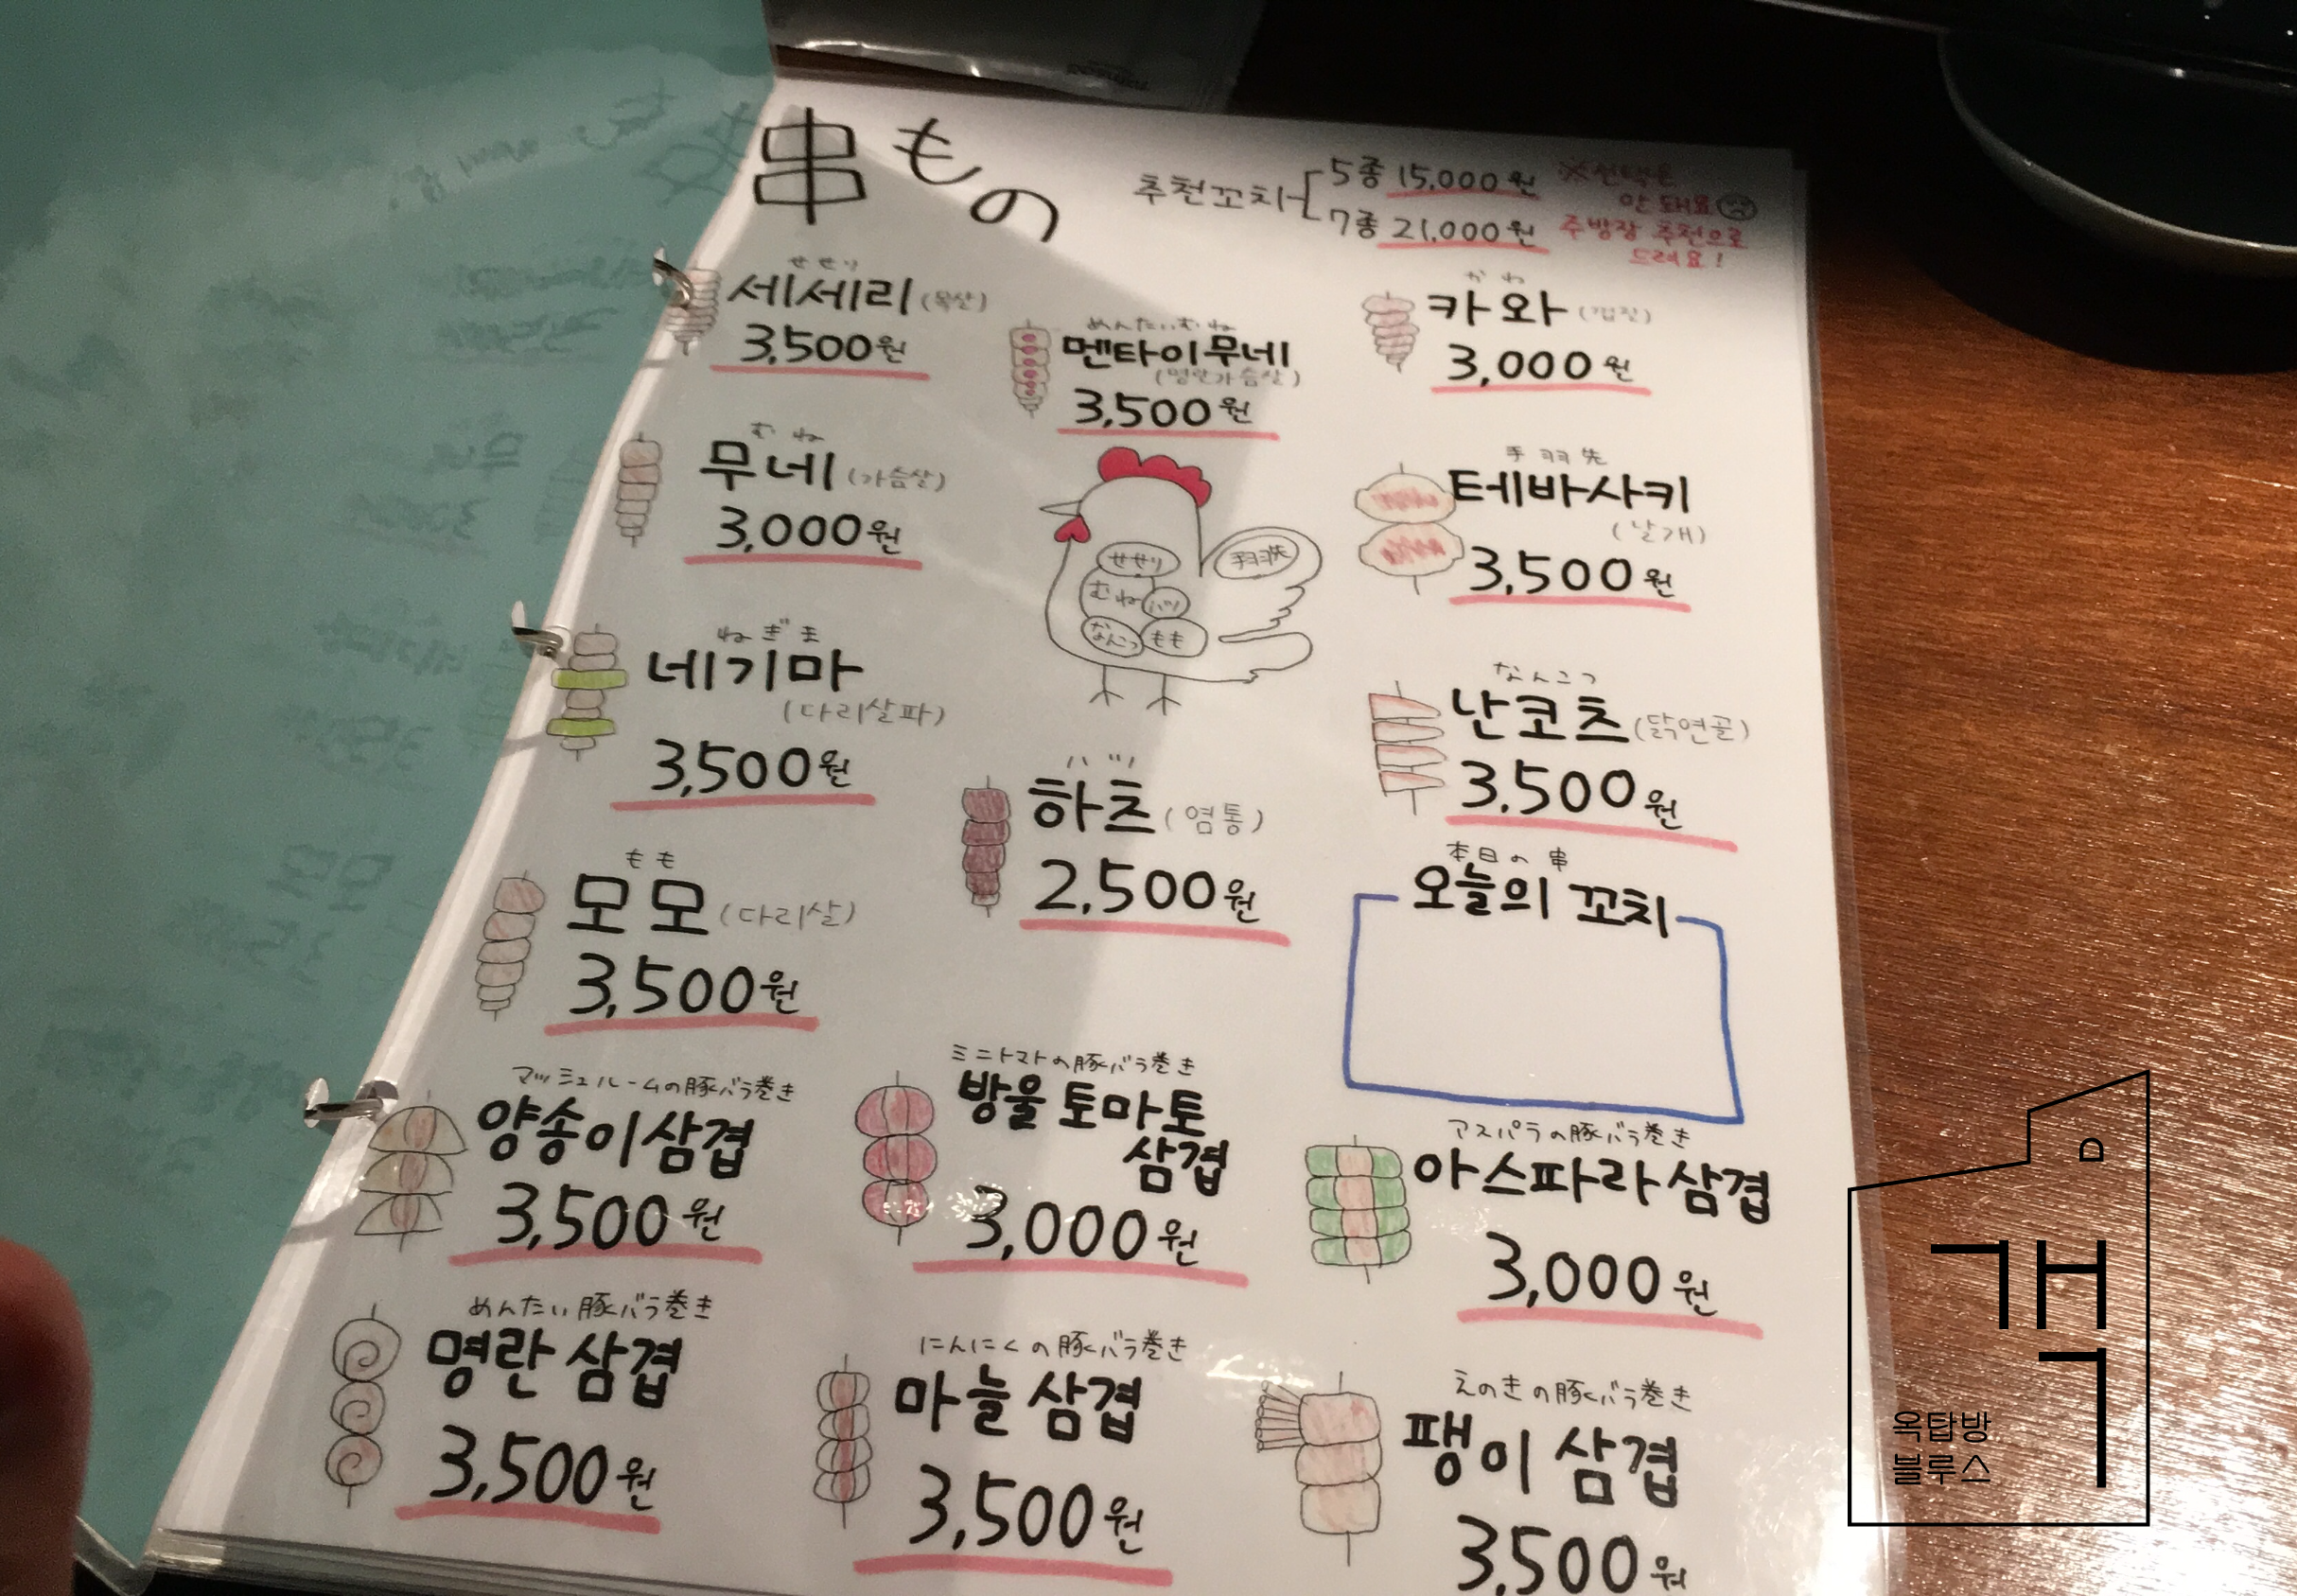 串もの
추천꼬치
5종 15,000원
7종 21,000원
※선택은
안 돼요
주방장 추천으로
드려요!
せせり
세세리 (목살)
3,500원
めんたいむね
멘타이무네
(명란가슴살)
3,500원
かわ
카와 (껍질)
3,000원
むね
무네 (가슴살)
3,000원
手羽先
테바사키
(날개)
3,500원
せせり
手羽先
むね
ハツ
なんこつ
もも
ねぎま
네기마
(다리살파)
3,500원
なんこつ
난코츠 (닭연골)
3,500원
ハツ
하츠 (염통)
2,500원
もも
모모 (다리살)
3,500원
本日の串
오늘의 꼬치
マッシュルームの豚バラ巻き
양송이삼겹
3,500원
ミニトマトの豚バラ巻き
방울 토마토
삼겹
3,000원
アスパラの豚バラ巻き
아스파라 삼겹
3,000원
めんたい豚バラ巻き
명란 삼겹
3,500원
にんにくの豚バラ巻き
마늘 삼겹
3,500원
えのきの豚バラ巻き
팽이 삼겹
3,500원
옥탑방
블루스